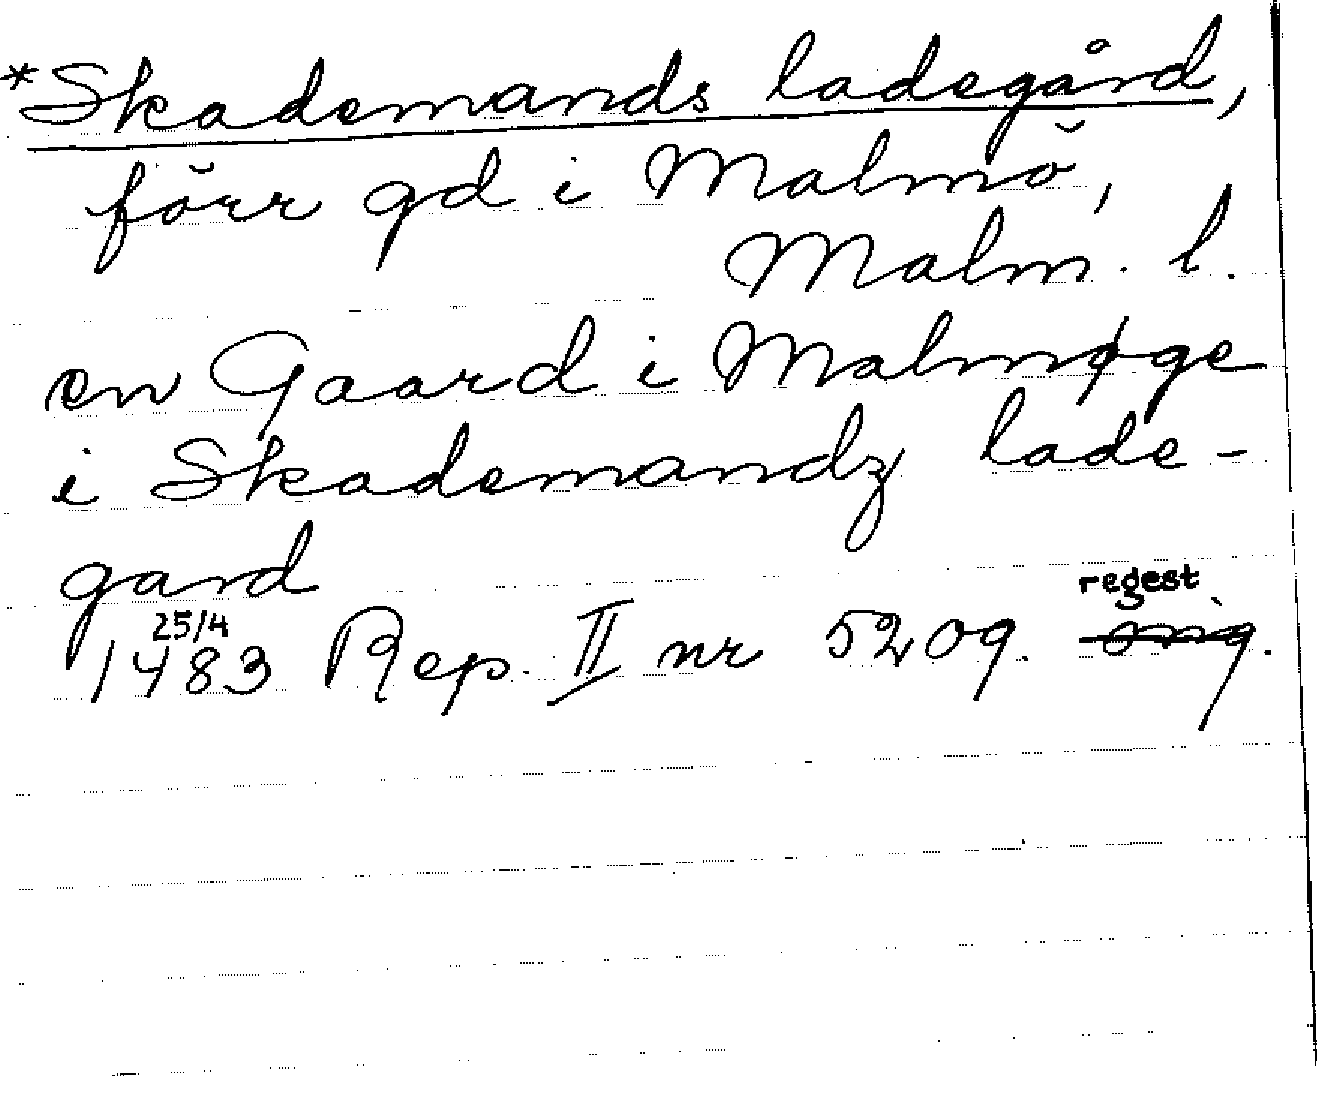 *Skademands ladegård,
förr gd i Malmö,
Malm. l.
en Gaard i Malmøge
i Skademandz lade-
gard
regest
25/4
1483 Rep. II nr 5209. orig.